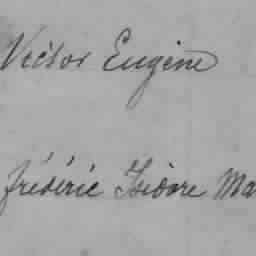 Victor Eugène
frédéric Isidore Ma